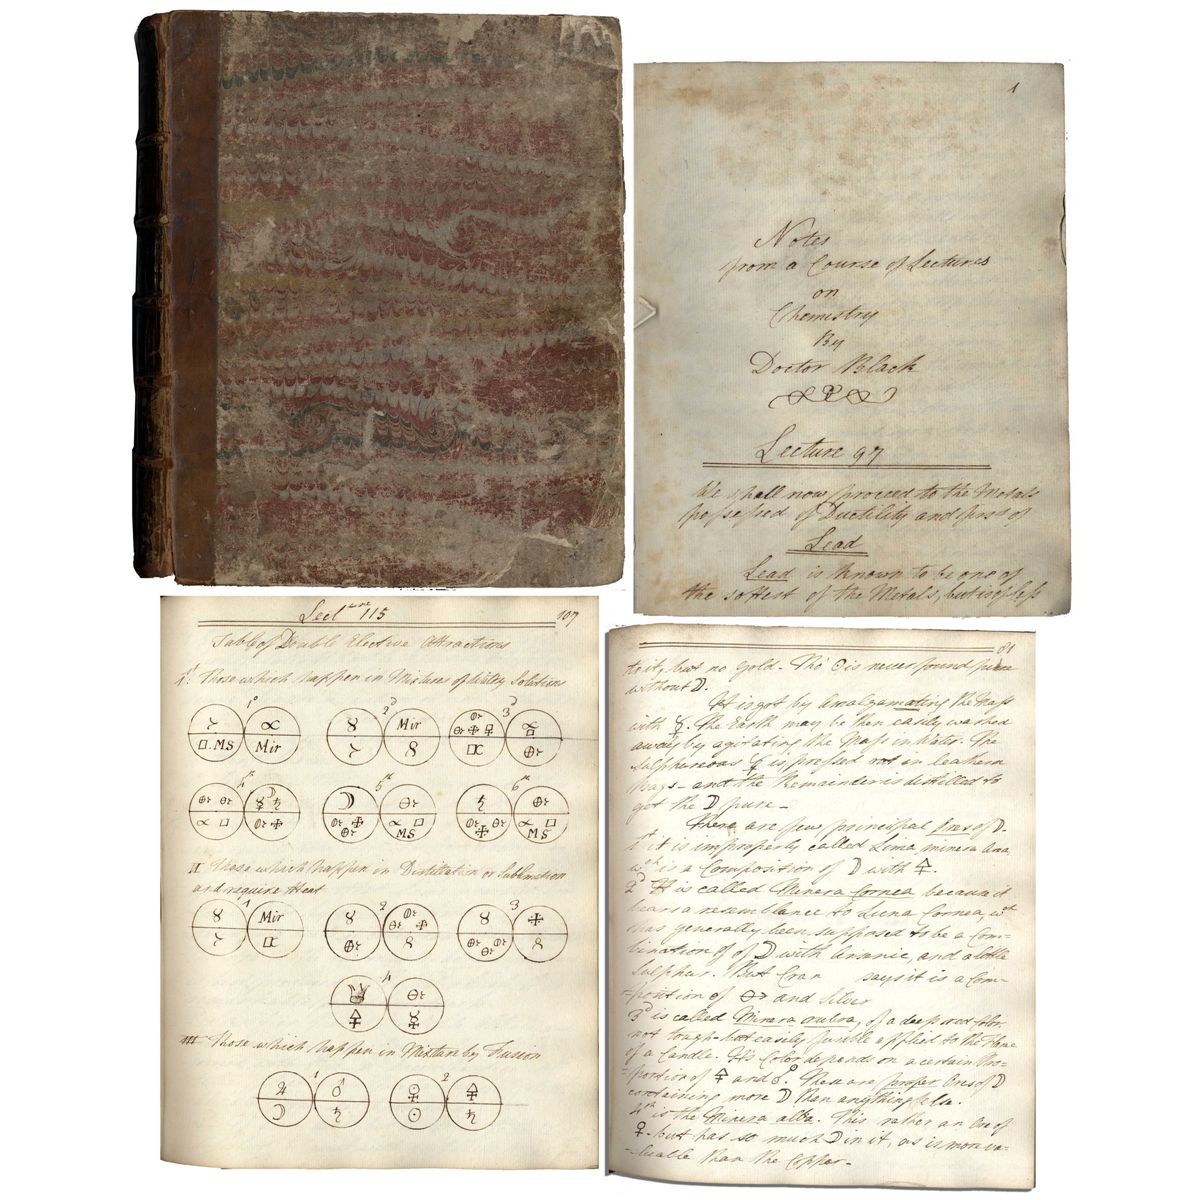 1
Notes
from a Course of Lectures
on
Chemistry
By
Doctor Black
Lecture 97
We shall now proceed to the Metals
possessed of Ductility and first of
Lead
Lead is known to be one of
the softest of the Metals, but is of less
Lect.ure 115 107
Table of Double Elective Attractions
1st. Those which happen in Mixture of Watry Solutions
1° 2d 3d
MS Mir Mir
4th 5th 6th
MS MS
II Those which happen in Distillation or Sublimation
and require Heat
1 2 3
Mir
4
III Those which happen in Mixture by Fusion
1 2
♃ ♂ ☽ ♄
81
but no gold. Tho' ☉ is never found pure
without ☽.
It is got by Amalgamating the Mass
with ☿. The Earth may be then easily washed
away by agitating the Mass in Water. The
superfluous ☿ is pressed out in leathern
Bags - and the Remainder is distilled to
get the ☽ pure -
There are few principal Ores of ☽.
1st it is improperly called Lima minera
wch is a Composition of ☽ with 🜍.
2d It is called Minera Cornea because it
bears a resemblance to Luna Cornea, wch
has generally been supposed to be a Com-
bination of ☽ with Arsenic, and a little
Sulphur. But Cran says it is a Com-
-position of and Silver
3d is called Minera rubra, of a deep red Color
not tough - but easily fusible applied to the flame
of a Candle. It's Color depends on a certain Pro-
-portion of 🜍 and ♂. These are proper Ores of ☽
containing more ☽ than anything else.
4th is the Minera alba. This rather an Ore of
♀ - but has so much ☽ in it, as is more va-
-luable than the Copper -